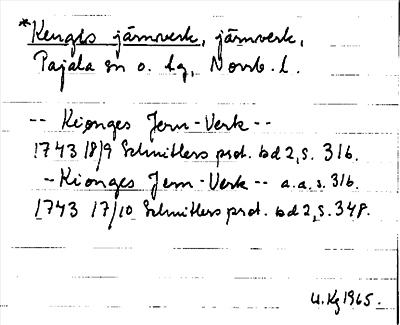 *Kengis järnverk, järnverk,
Pajala sn o. tg, Norrb. l.
-- Kionges Jern-Verk --
1743 18/9 Schnitlers prot. bd 2, s. 316.
- Kionges Jern-Verk -- a.a. s. 316.
1743 17/10 Schnitlers prot. bd 2, s. 348.
U. Kg 1965.